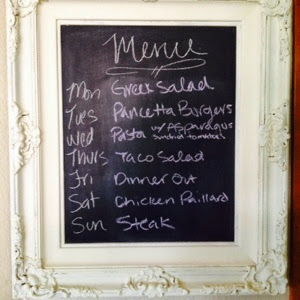 Menu
Mon Greek Salad
Tues Pancetta Burgers
Wed Pasta w/ Asparagus
sundried tomatoes
Thurs Taco Salad
Fri Dinner Out
Sat Chicken Paillard
Sun Steak